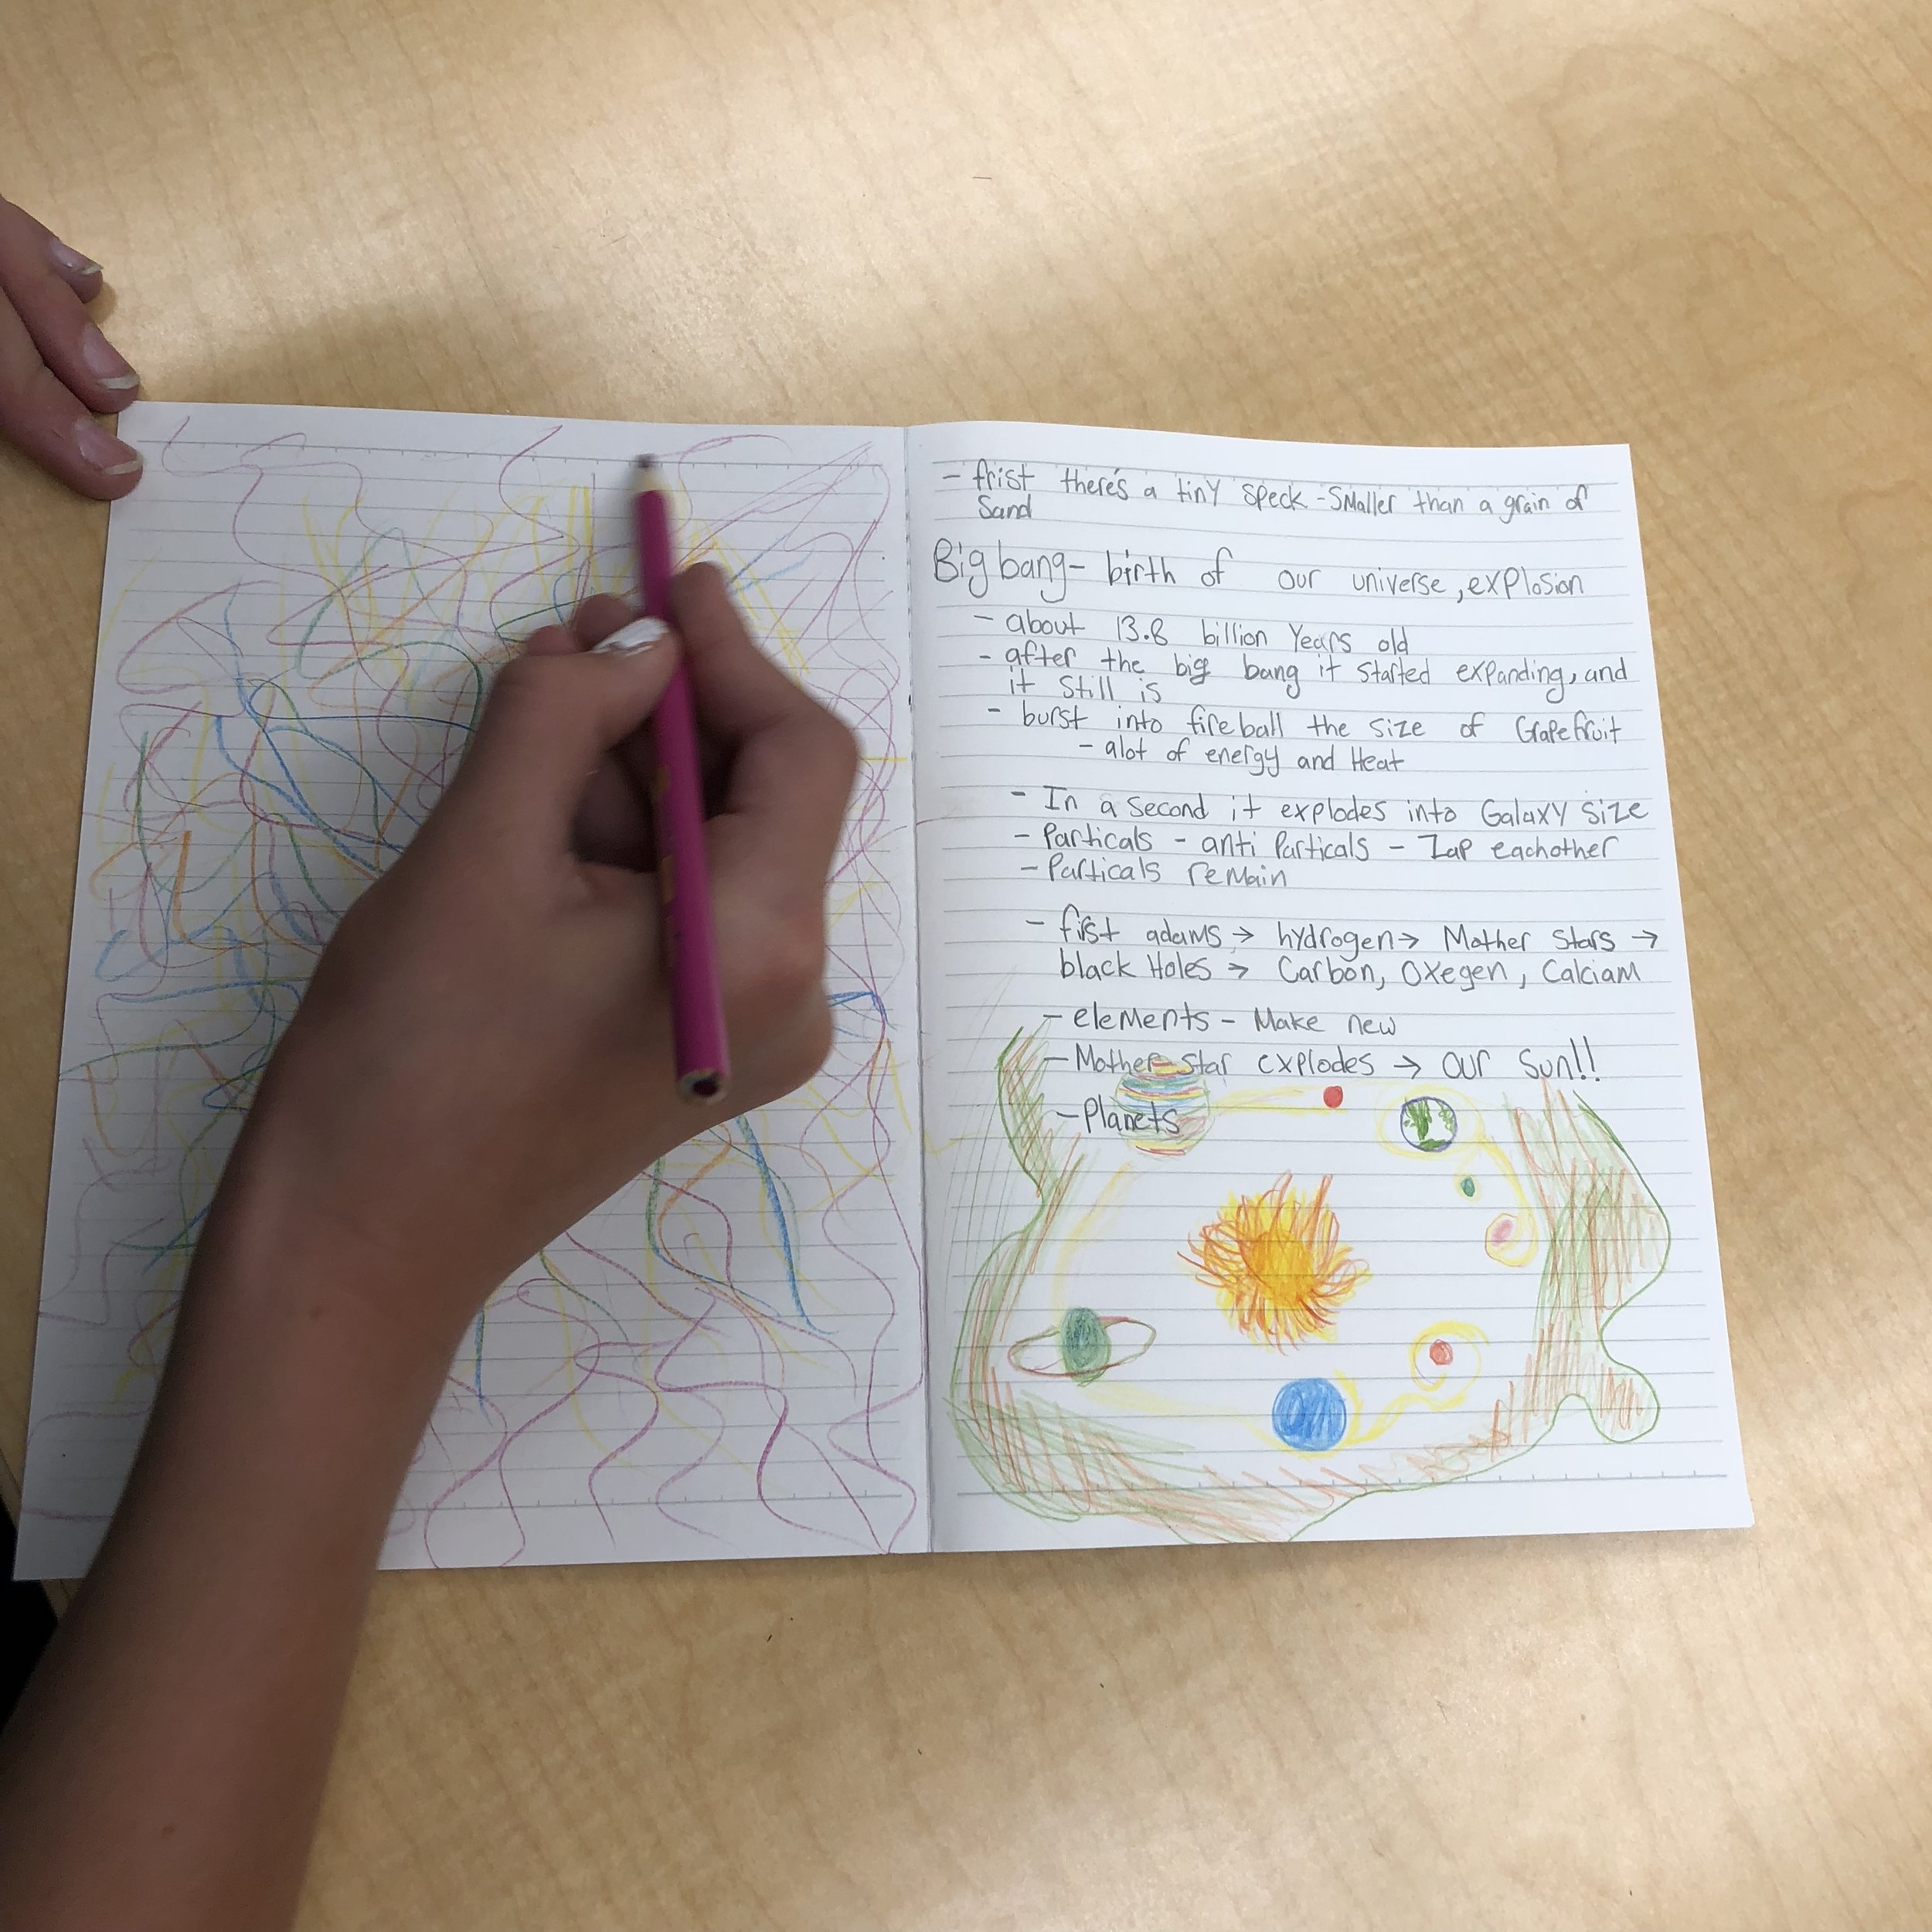 - frist there's a tiny speck - smaller than a grain of
sand
Big bang - birth of our universe, explosion
- about 13.8 billion years old
- after the big bang it started expanding, and
it still is
- burst into fireball the size of Grapefruit
- alot of energy and Heat
- In a second it explodes into Galaxy size
- Particals - anti Particals - Zap eachother
- Particals remain
- first adams → hydrogen → Mother Stars →
black Holes → Carbon, Oxegen, Calciam
- elements - Make new
- Mother Star explodes → our Sun!!
- Planets